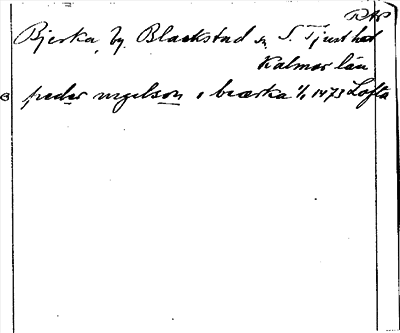 RAP
Bjerka, by, Blackstad sn S. Tjust hd
Kalmar län
peder ingelson i biærka 1/1 1473 Lofta